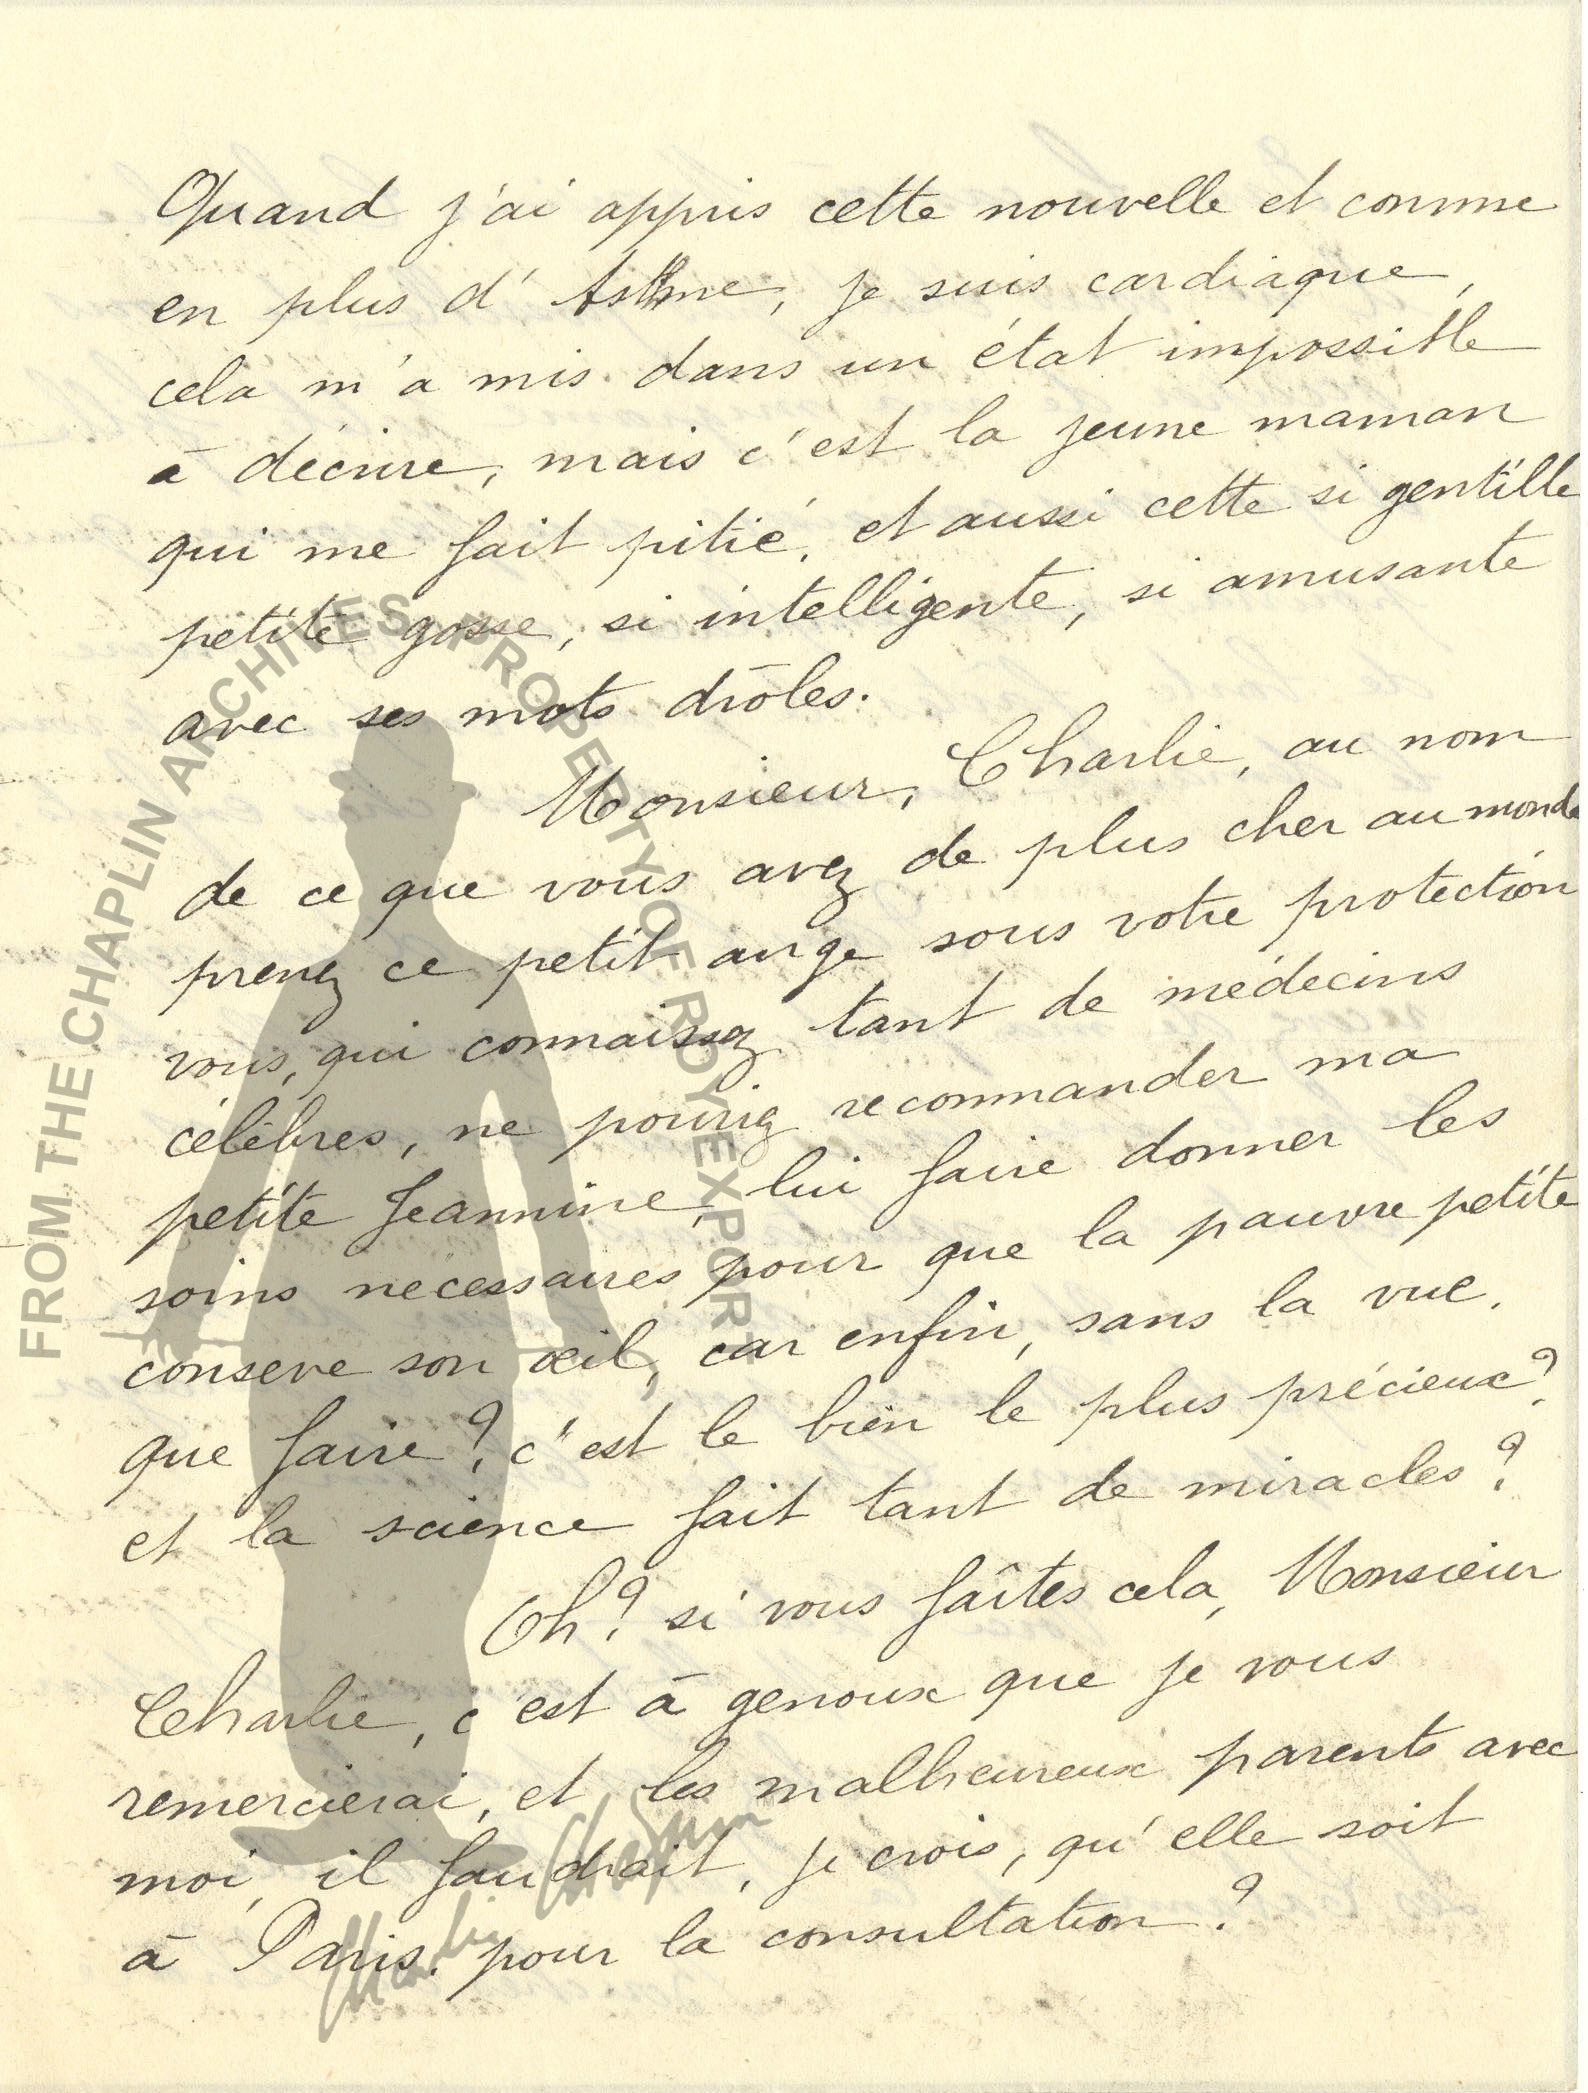 Quand j'ai appris cette nouvelle et comme
en plus d'Asthme, je suis cardiaque,
cela m'a mis dans un état impossible
à décrire, mais c'est la jeune maman
qui me fait pitié, et aussi cette si gentille
petite gosse, si intelligente, si amusante
avec ses mots drôles.
Monsieur, Charlie, au nom
de ce que vous avez de plus cher au monde
prenez ce petit ange sous votre protection
vous, qui connaissez tant de médecins
célèbres, ne pouriez recommander ma
petite Jeannine, lui faire donner les
soins necessaires pour que la pauvre petite
conserve son œil, car enfin, sans la vue,
que faire? c'est le bien le plus précieux?
et la science fait tant de miracles?
Oh? si vous faîtes cela, Monsieur
Charlie, c'est à genoux que je vous
remercierai, et les malheureux parents avec
moi, il faudrait, je crois, qu'elle soit
à Paris. pour la consultation?
FROM THE CHAPLIN ARCHIVES PROPERTY OF ROY EXPORT
Charlie Chaplin